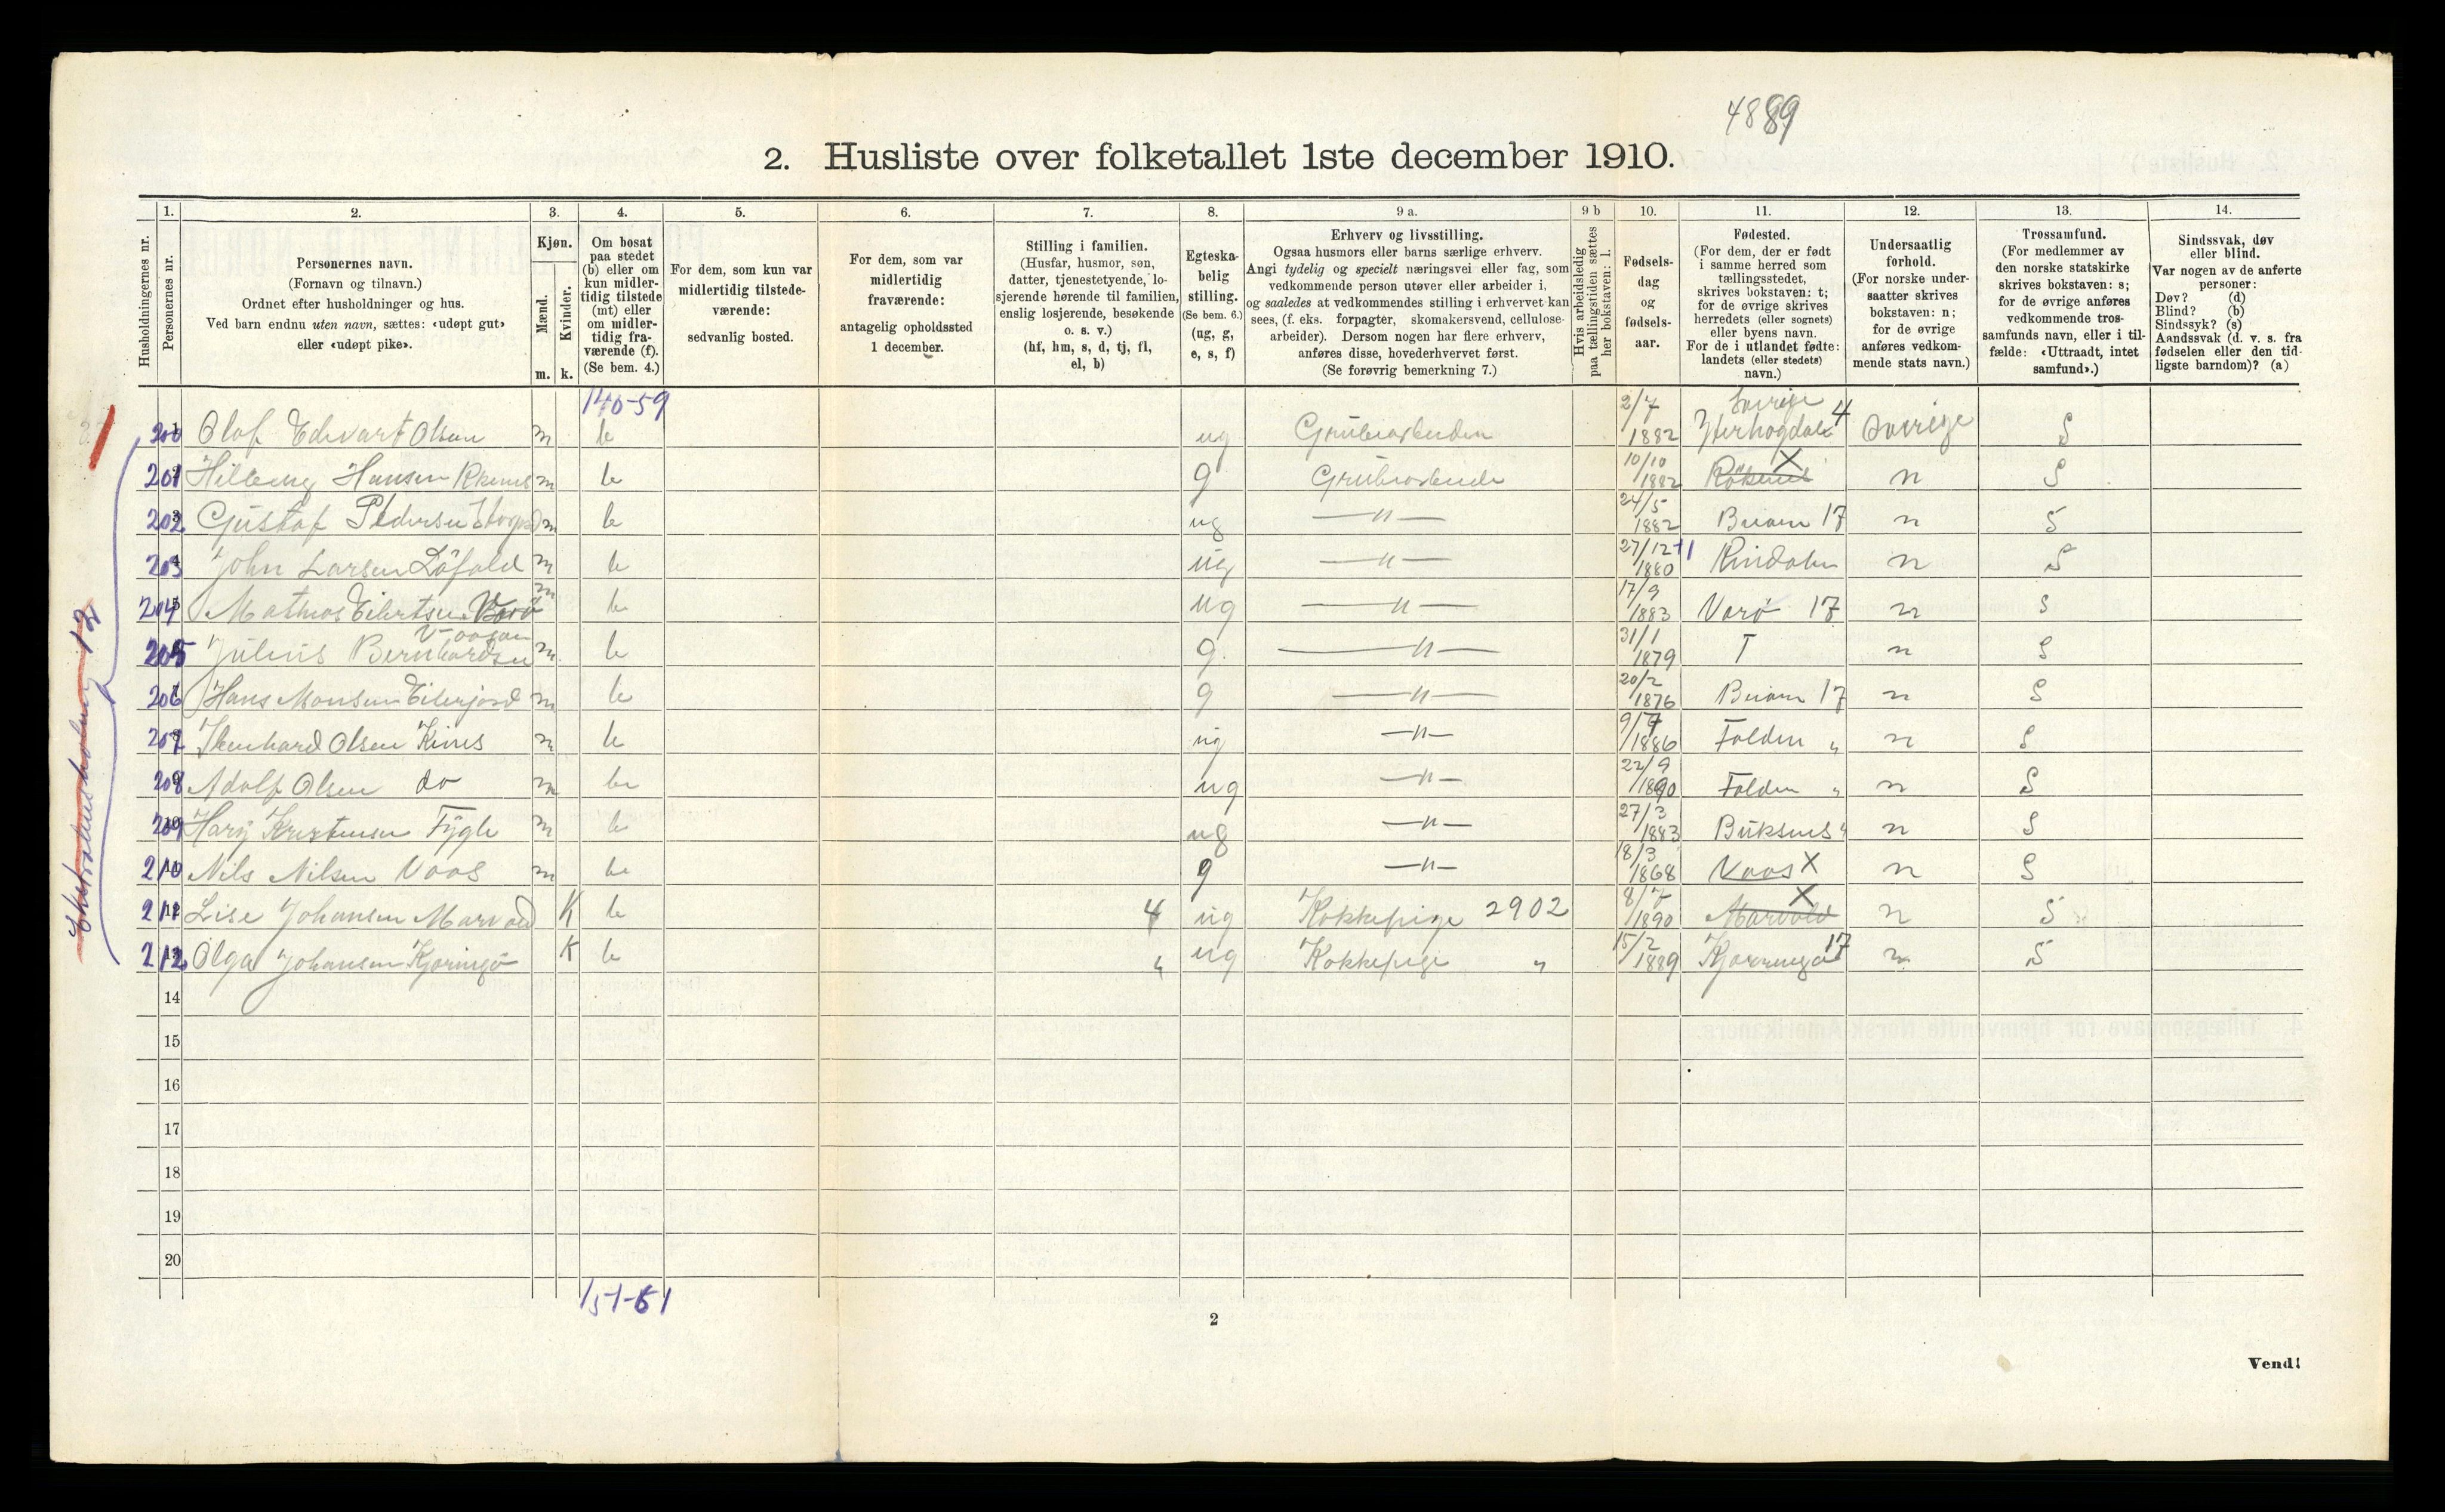 4889
2. Husliste over folketallet 1ste december 1910.
Husholdningernes nr.
1.
Personernes nr.
2.
Personernes navn.
(Fornavn og tilnavn.)
Ordnet efter husholdninger og hus.
Ved barn endnu uten navn, sættes: «udøpt gut»
eller «udøpt pike».
3.
Kjøn.
Mænd.
Kvinder.
m. k.
4.
Om bosat
paa stedet
(b) eller om
kun midler-
tidig tilstede
(mt) eller
om midler-
tidig fra-
værende (f).
(Se bem. 4.)
5.
For dem, som kun var
midlertidig tilstede-
værende:
sedvanlig bosted.
6.
For dem, som var
midlertidig
fraværende:
antagelig opholdssted
1 december.
7.
Stilling i familien.
(Husfar, husmor, søn,
datter, tjenestetyende, lo-
sjerende hørende til familien,
enslig losjerende, besøkende
o. s. v.)
(hf, hm, s, d, tj, fl,
el, b)
8.
Egteska-
belig
stilling.
(Se bem. 6.)
(ug, g,
e, s, f)
9 a.
Erhverv og livsstilling.
Ogsaa husmors eller barns særlige erhverv.
Angi tydelig og specielt næringsvei eller fag, som
vedkommende person utøver eller arbeider i,
og saaledes at vedkommendes stilling i erhvervet kan
sees, (f. eks. forpagter, skomakersvend, cellulose-
arbeider). Dersom nogen har flere erhverv,
anføres disse, hovederhvervet først.
(Se forøvrig bemerkning 7.)
9 b
Hvis arbeidsledig
paa tællingstiden sættes
her bokstaven: l.
10.
Fødsels-
dag
og
fødsels-
aar.
11.
Fødested.
(For dem, der er født
i samme herred som
tællingsstedet,
skrives bokstaven: t;
for de øvrige skrives
herredets (eller sognets)
eller byens navn.
For de i utlandet fødte:
landets (eller stedets)
navn.)
12.
Undersaatlig
forhold.
(For norske under-
saatter skrives
bokstaven: n;
for de øvrige
anføres vedkom-
mende stats navn.)
13.
Trossamfund.
(For medlemmer av
den norske statskirke
skrives bokstaven: s;
for de øvrige anføres
vedkommende tros-
samfunds navn, eller i til-
fælde: «Uttraadt, intet
samfund».)
14.
Sindssvak, døv
eller blind.
Var nogen av de anførte
personer:
Døv? (d)
Blind? (b)
Sindssyk? (s)
Aandssvak (d. v. s. fra
fødselen eller den tid-
ligste barndom)? (a)
140-59
200 Olaf Edvart Olsen m b ug Grubearbeiden 2/7 1882 Sverige Yterhogdal 4 Sverige S
201 Hansen m b g Grubearbeide 10/10 1882 X n S
202 Gustaf Pedersen m b ug —"— 24/5 1882 17 n S
203 John Larsen Löfald m b ug —"— 27/12 1880 11 Rindalen n S
204 Mathias Eilertsen m b ug —"— 17/9 1883 Værø 17 n S
205 Julius Bernhardsen Vaagan m b g —"— 31/1 1879 T n S
206 Hans Monsen m b g —"— 20/2 1876 17 n S
207 Olsen m b ug —"— 9/7 1886 Folden " n S
208 Adolf Olsen do m b ug —"— 22/9 1890 Folden " n S
209 Harÿ Kristensen Fÿgle m b ug —"— 27/3 1883 Buksnes " n S
210 Nils Nilsen Voos m b g —"— 18/3 1868 Voos X n S
211 Lise Johansen Marvold K b 4 ug Kokkepige 2902 8/7 1890 Marvold X n S
212 Olga Johansen Kjøringø K b " ug Kokkepige " 15/2 1889 Kjørringø 17 n S
14
15
16
17
18
19
20
151-61
2
Vend!